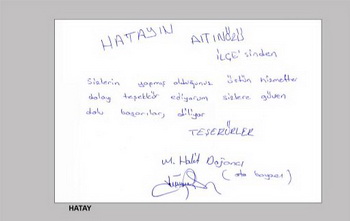 HATAYIN ALTINÖZÜ
İLÇE'sinden
Sizlerin yapmış olduğunuz üstün hizmetler
dolay teşekkür ediyorum sizlere güven
dolu başarılar, diliyor
TEŞEKÜRLER
M. Halit Doğancı
(oto boyacısı)
HATAY